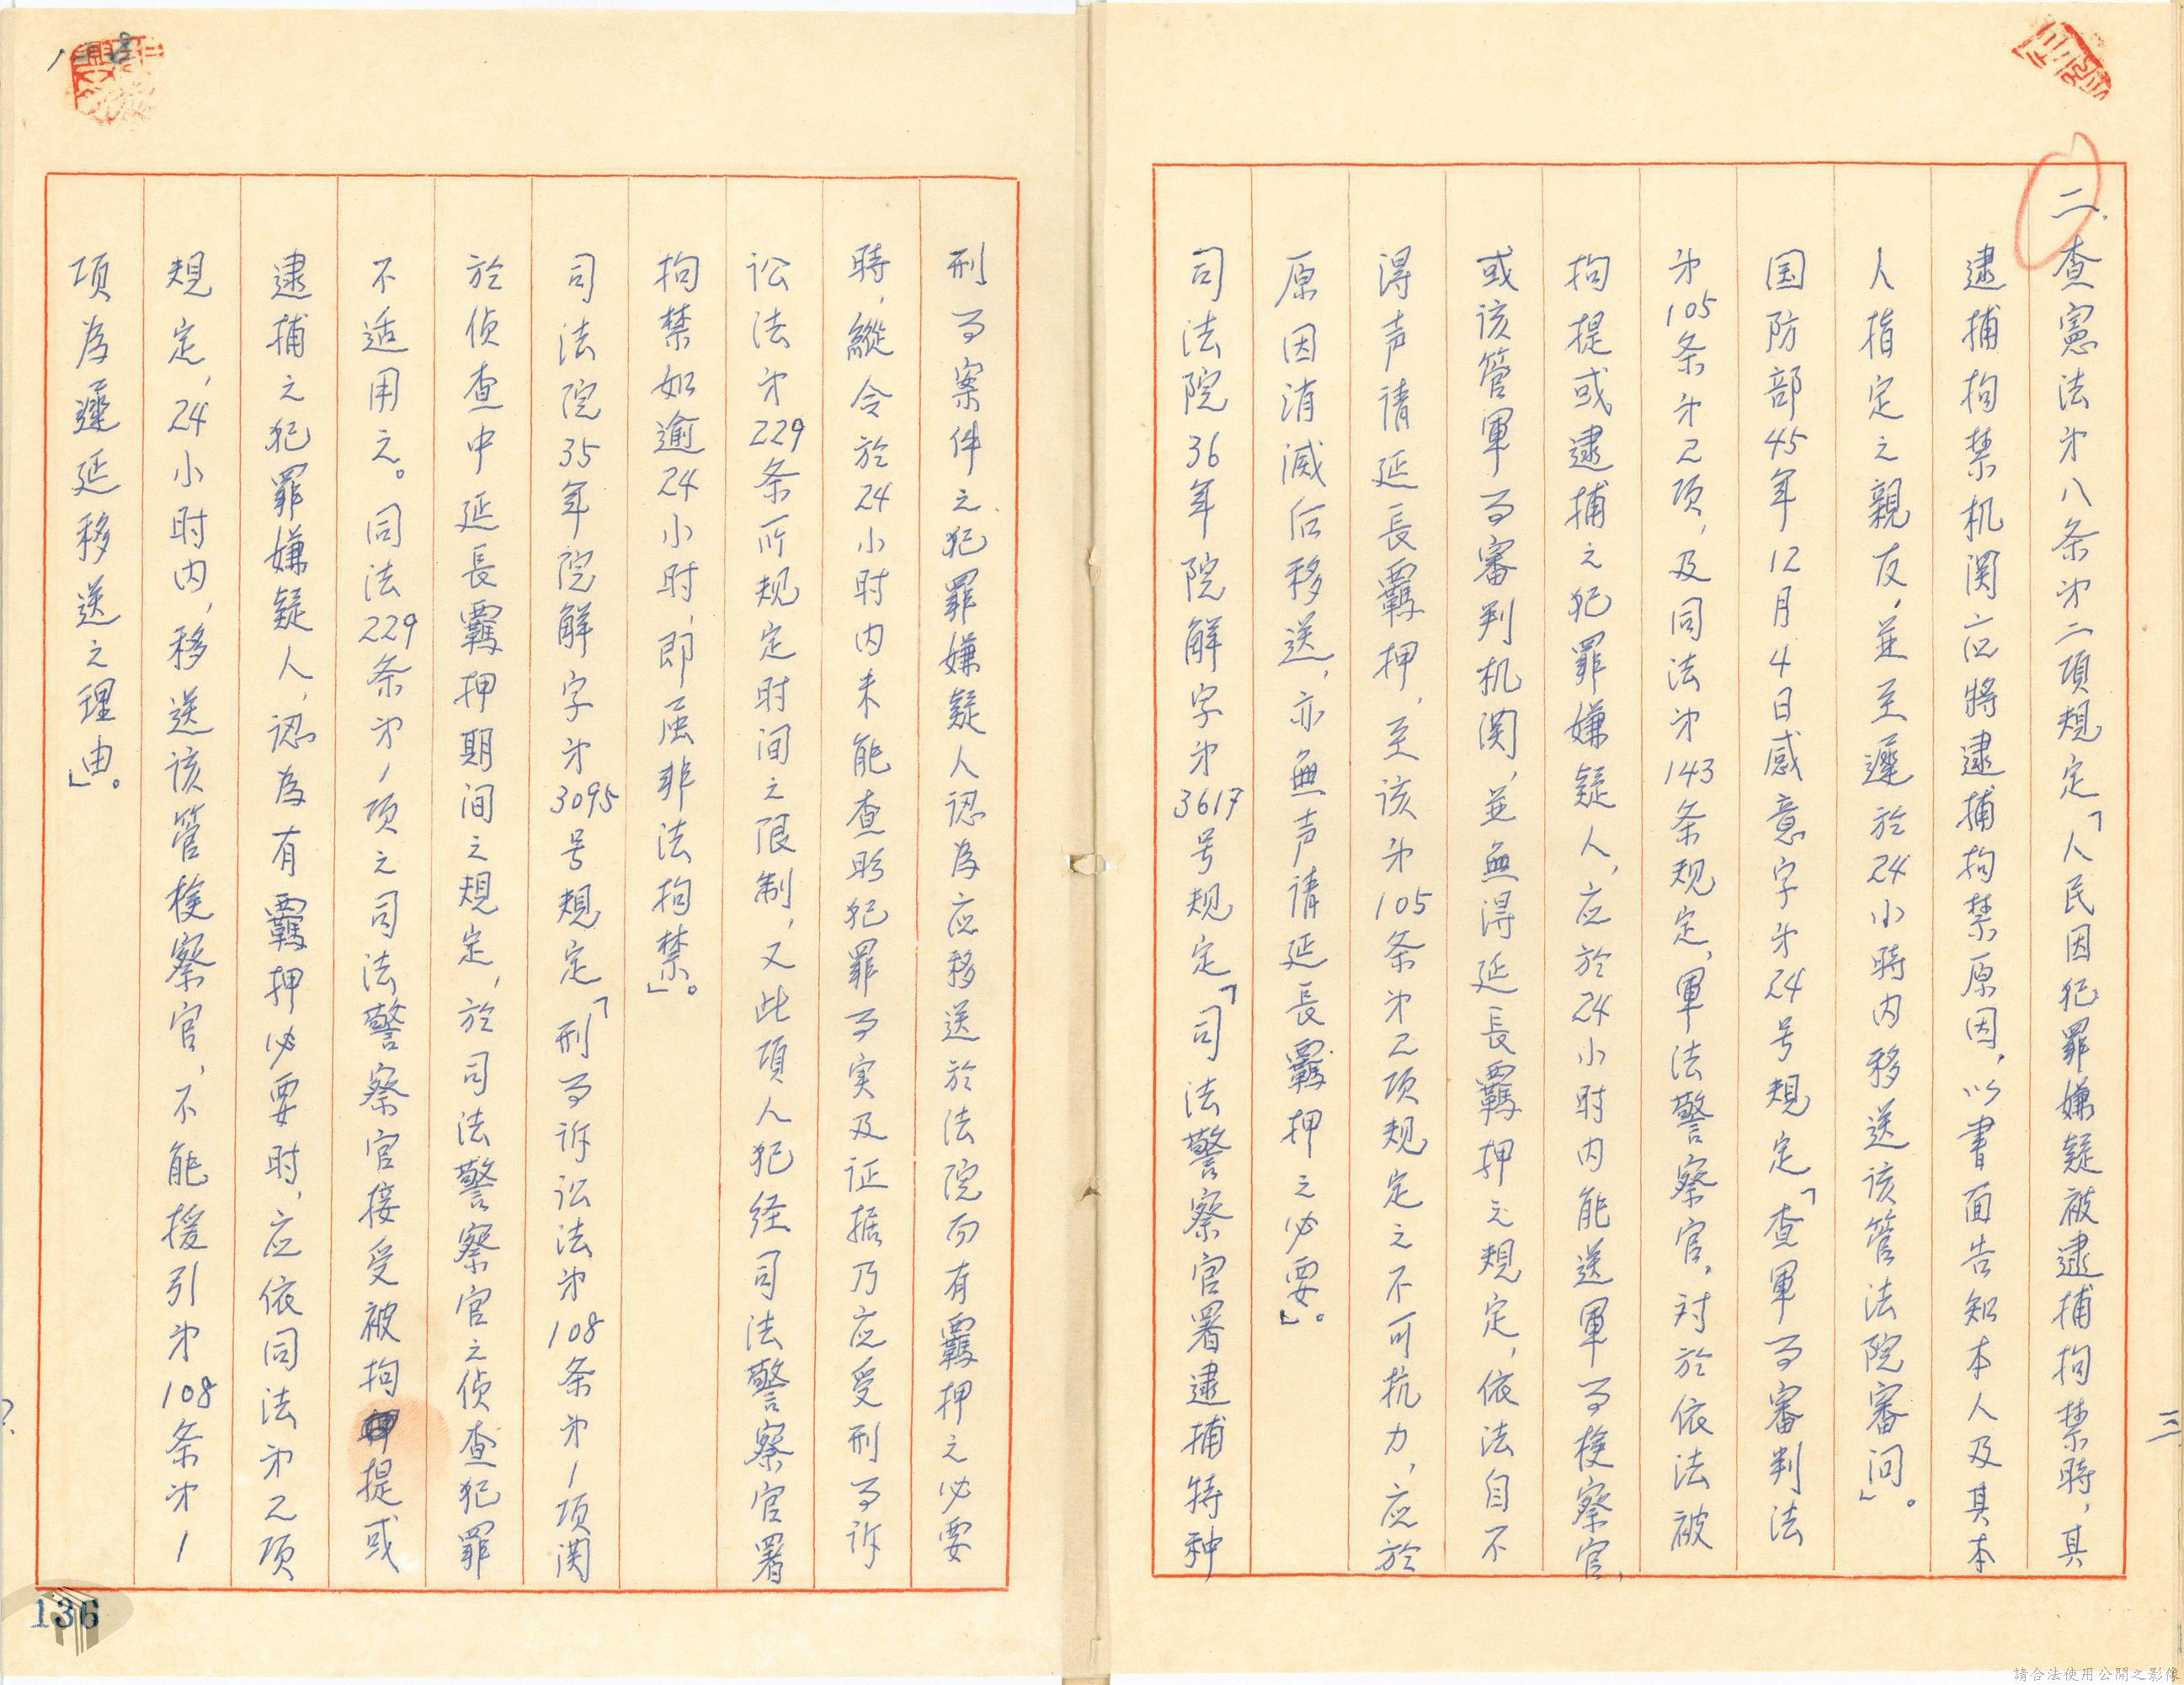 二.查憲法㐧八条㐧二項規定「人民因犯罪嫌疑被逮捕拘禁時,其
逮捕拘禁机関应將逮捕拘禁原因,以書面告知本人及其本
人指定之親友,並至遲於24小時内移送该管法院審问」。
国防部45年12月4日感意字㐧24号規定「查軍事審判法
㐧105条㐧2项,及同法㐧143条规定,軍法警察官,対於依法被
拘提或逮捕之犯罪嫌疑人,应於24小时内能送軍事検察官,
或该管軍事審判机関,並無得延長羈押之規定,依法自不
得声请延長羈押,至该㐧105条㐧2项规定之不可抗力,应於
原因消滅后移送,亦無声请延長羈押之必要」。
司法院36年院解字㐧3617号规定「司法警察官署逮捕特种
三
刑事案件之犯罪嫌疑人认為应移送於法院而有羈押之必要
時,縱令於24小时内未能查眀犯罪事实及证据乃应受刑事诉
讼法㐧229条所规定时间之限制,又此項人犯经司法警察官署
拘禁如逾24小时,即虽非法拘禁」。
司法院35年院解字㐧3095号規定「刑事诉讼法㐧108条㐧1项関
於侦查中延長羈押期间之規定,於司法警察官之侦查犯罪
不适用之。同法229条㐧1项之司法警察官接受被拘提或
逮捕之犯罪嫌疑人,認為有羈押必要时,应依同法㐧2项
規定,24小时内,移送该管検察官,不能援引㐧108条㐧1
项為遲延移送之理由」。
136
請合法使用公開之影像